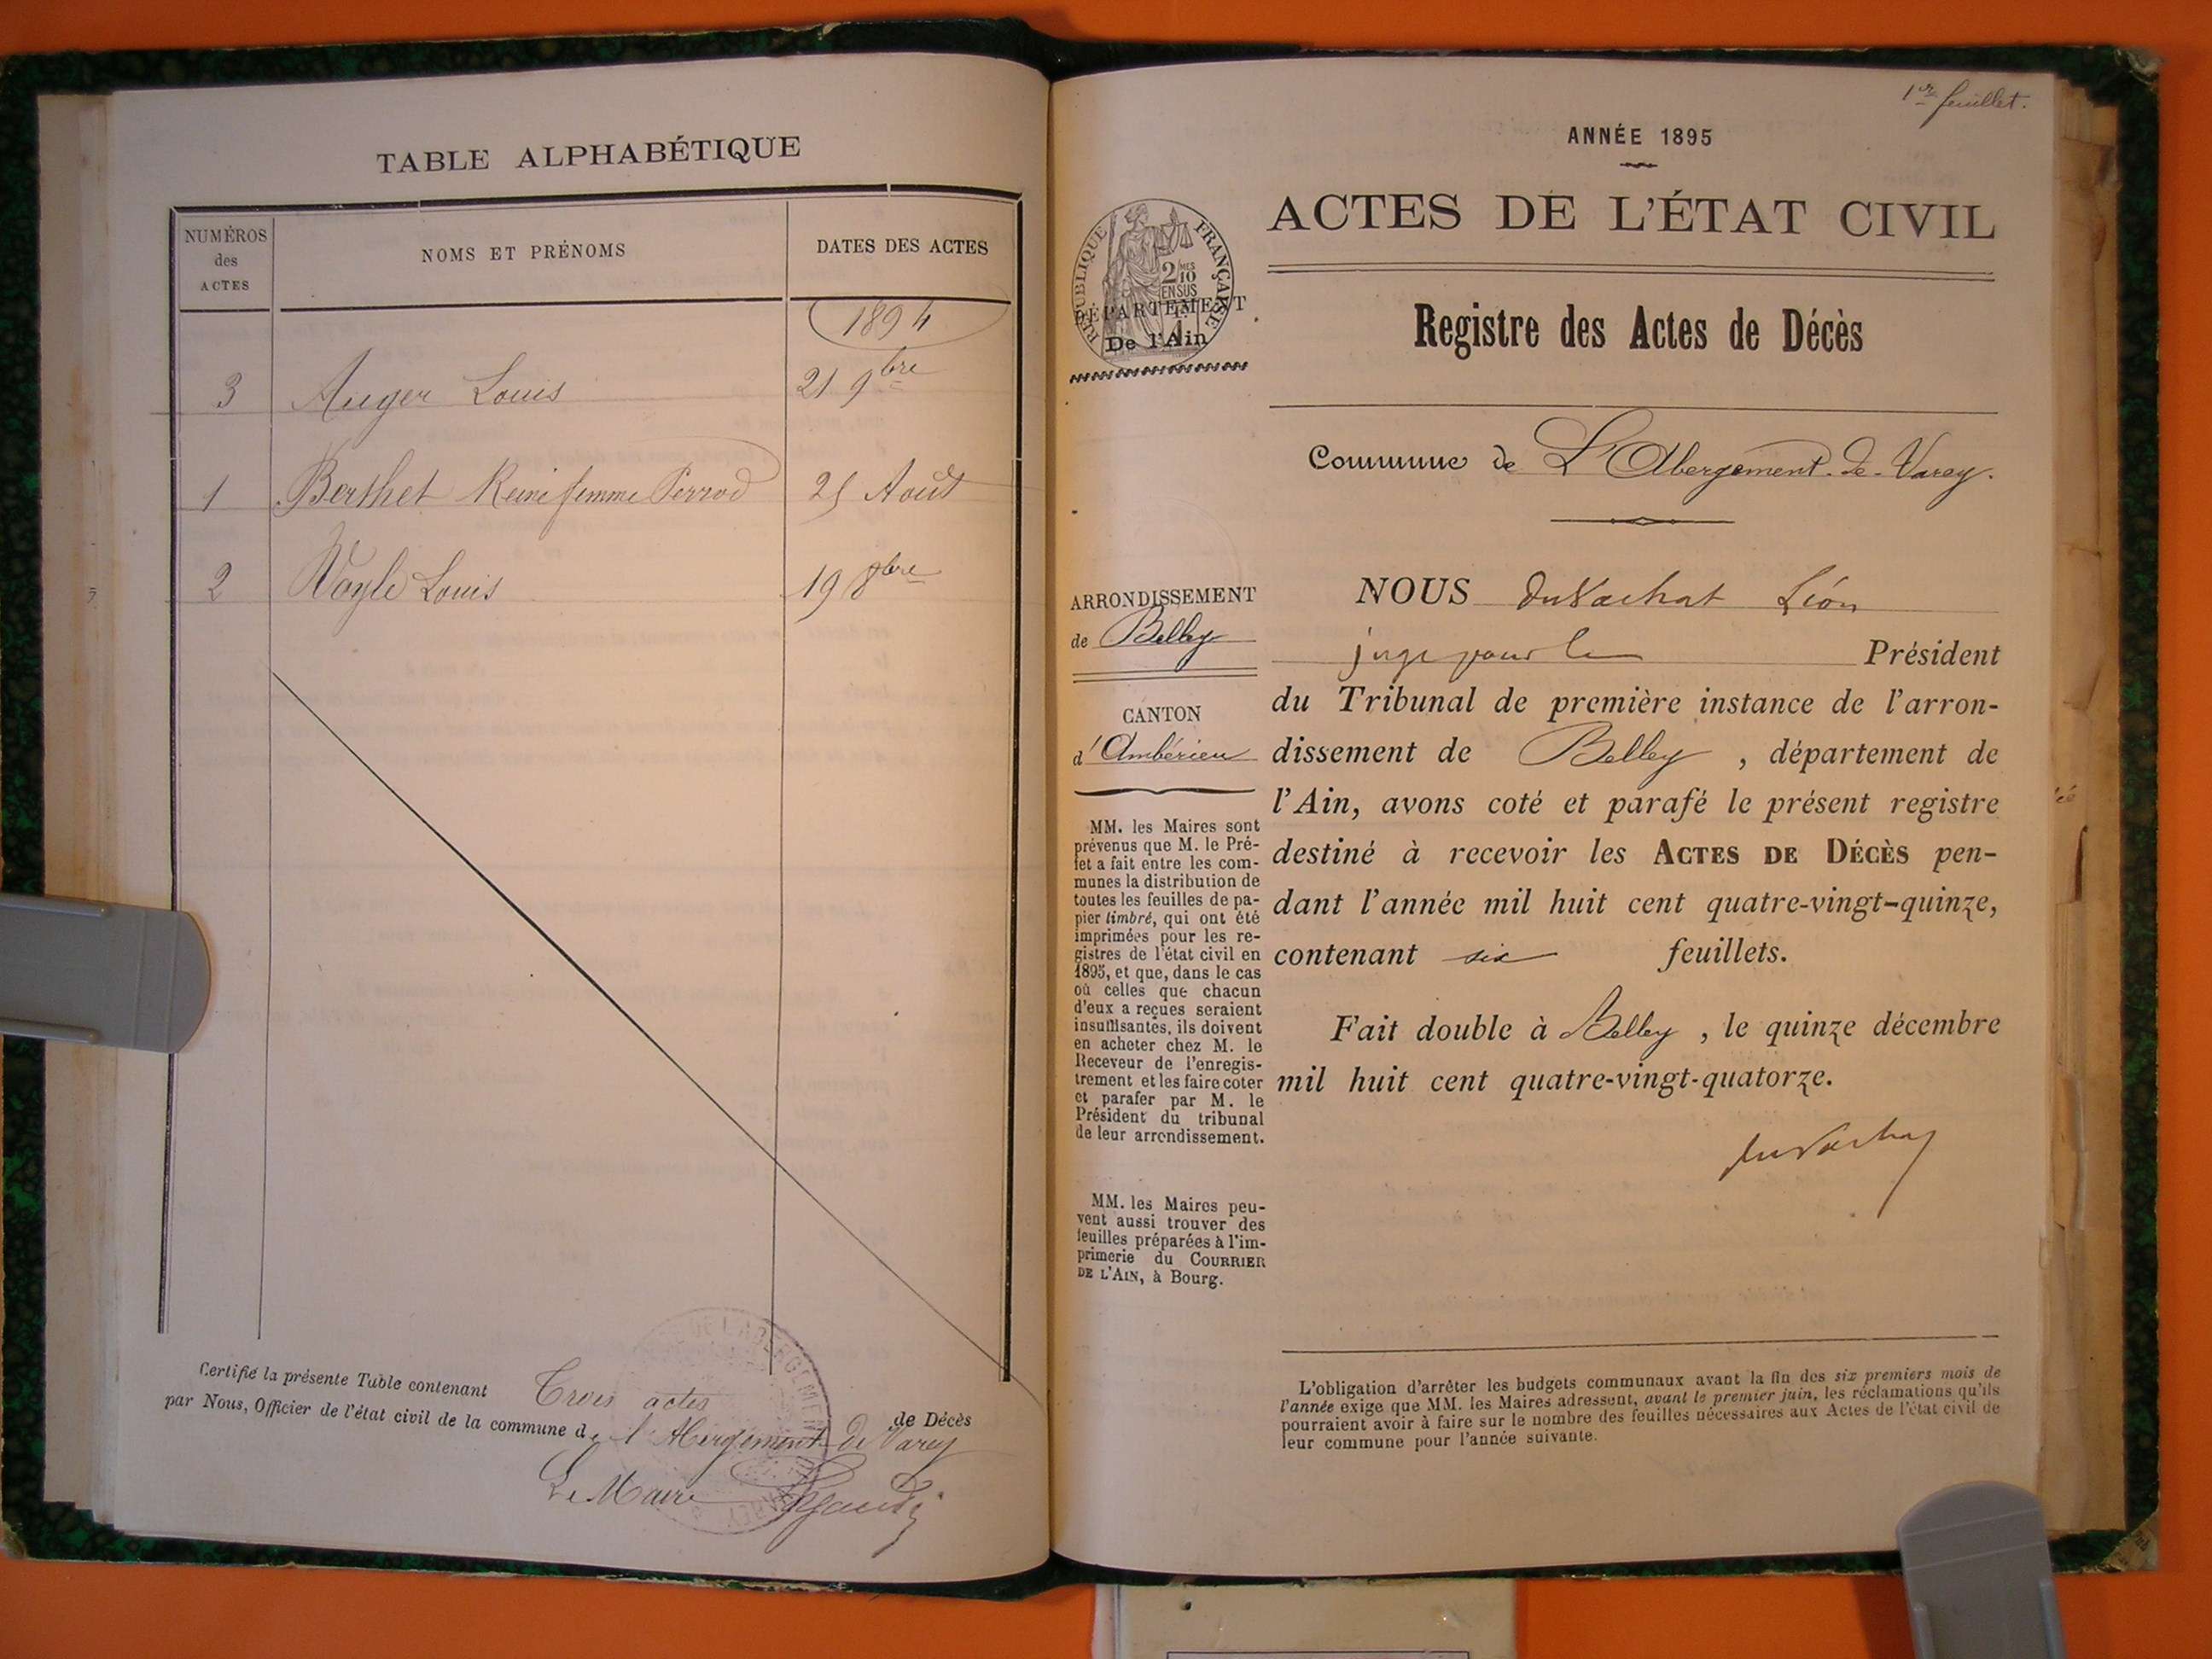 TABLE ALPHABÉTIQUE
NUMÉROS
des
ACTES
NOMS ET PRÉNOMS
DATES DES ACTES
1894
3 Auger Louis 21 9bre
1 Berthet Reine femme Perrod 25 Août
2 Louis 19 8bre
Certifié la présente Table contenant Trois actes de Décès
par Nous, Officier de l'état civil de la commune de l'Abergement de Varey
Le Maire
1er feuillet.
ANNÉE 1895
ACTES DE L'ÉTAT CIVIL
RÉPUBLIQUE FRANÇAISE
2/10MES
EN SUS
DÉPARTEMENT
De l'Ain
Registre des Actes de Décès
Commune de L'Abergement-de-Varey.
ARRONDISSEMENT
de Belley
CANTON
d'Ambérieu
MM. les Maires sont
prévenus que M. le Pré-
fet a fait entre les com-
munes la distribution de
toutes les feuilles de pa-
pier timbré, qui ont été
imprimées pour les re-
gistres de l'état civil en
1895, et que, dans le cas
où celles que chacun
d'eux a reçues seraient
insuffisantes, ils doivent
en acheter chez M. le
Receveur de l'enregis-
trement et les faire coter
et parafer par M. le
Président du tribunal
de leur arrondissement.
MM. les Maires peu-
vent aussi trouver des
feuilles préparées à l'im-
primerie du COURRIER
DE L'AIN, à Bourg.
NOUS Duvachat Léon
juge pour le Président
du Tribunal de première instance de l'arron-
dissement de Belley, département de
l'Ain, avons coté et parafé le présent registre
destiné à recevoir les ACTES DE DÉCÈS pen-
dant l'année mil huit cent quatre-vingt-quinze,
contenant six feuillets.
Fait double à Belley, le quinze décembre
mil huit cent quatre-vingt-quatorze.
Duvachat
L'obligation d'arrêter les budgets communaux avant la fin des six premiers mois de
l'année exige que MM. les Maires adressent, avant le premier juin, les réclamations qu'ils
pourraient avoir à faire sur le nombre des feuilles nécessaires aux Actes de l'état civil de
leur commune pour l'année suivante.